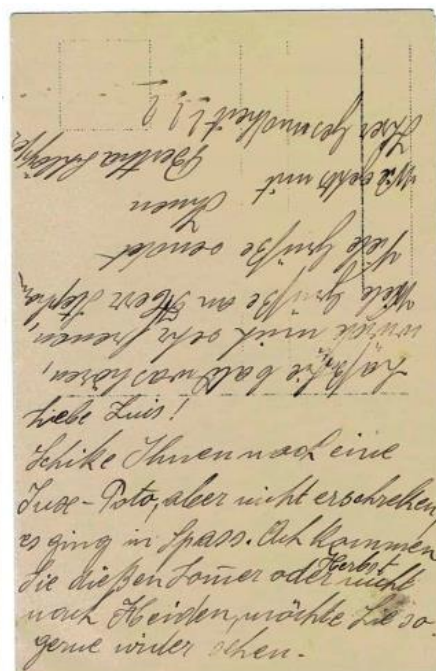 Liebe Luis!
Schike Ihnen noch eine
Jux-Foto, aber nicht erschreken,
es ging in Spass. Ach kommen
Sie dießen Somer oder Herbst nicht
nach Heiden, möchte Sie so
gerne wider sehen.-
Sie bald was hören,
würde mich sehr freuen,
Viele Grüße an Herr Stephan
Viele Grüße sendet
Ihnen
Bertha
Wie gehts mit
Ihrer Gesundheit ? ? ?